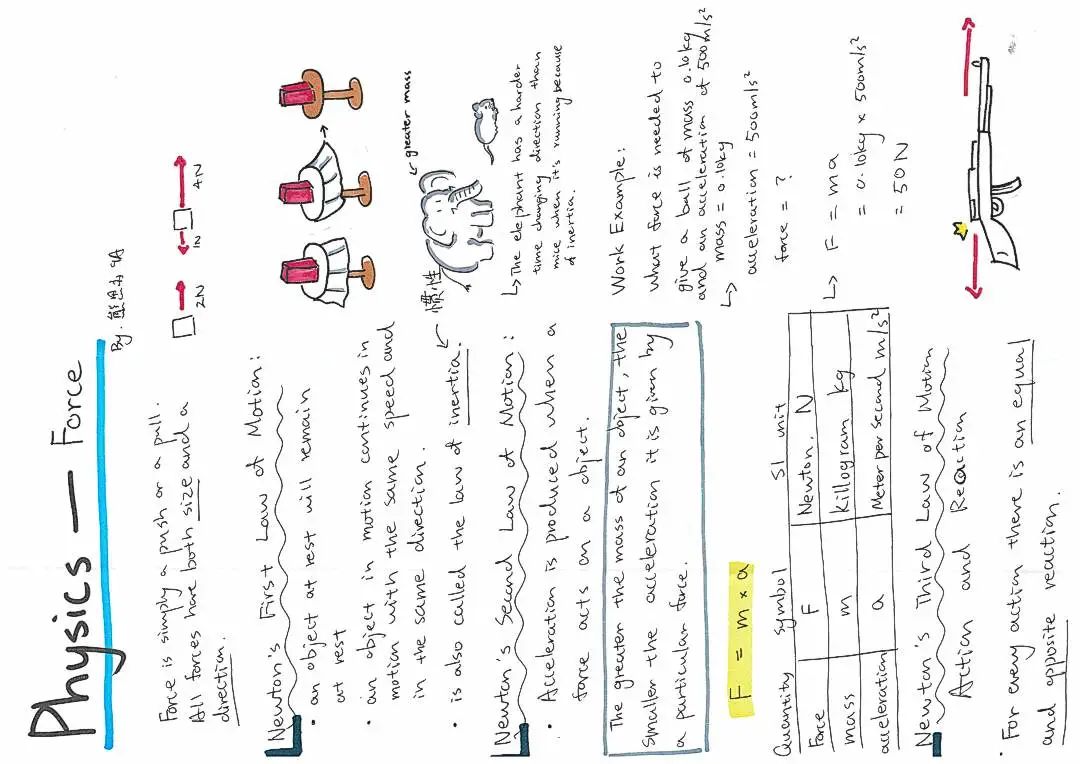 Physics — Force
By. 9A
Force is simply a push or a pull.
All forces have both size and a
direction.
2N
2
4N
Newton's First Law of Motion:
• an object at rest will remain
at rest
• an object in motion continues in
motion with the same speed and
in the same direction.
• is also called the law of inertia.
惯性
greater mass
↳ The elephant has a harder
time changing direction than
mice when it's running because
of inertia.
Newton's Second Law of Motion:
• Acceleration is produced when a
force acts on a object.
The greater the mass of an object, the
smaller the acceleration it is given by
a particular force.
F = m × a
Work Example:
What force is needed to
give a ball of mass 0.10kg
and an acceleration of 500m/s²
↳ mass = 0.10kg
acceleration = 500m/s²
force = ?
↳ F = ma
= 0.10kg × 500m/s²
= 50N
Quantity symbol SI unit
Force F Newton. N
mass m Killogram kg
acceleration a Meter per second m/s²
Newton's Third Law of Motion
Action and Reaction
• For every action there is an equal
and opposite reaction.